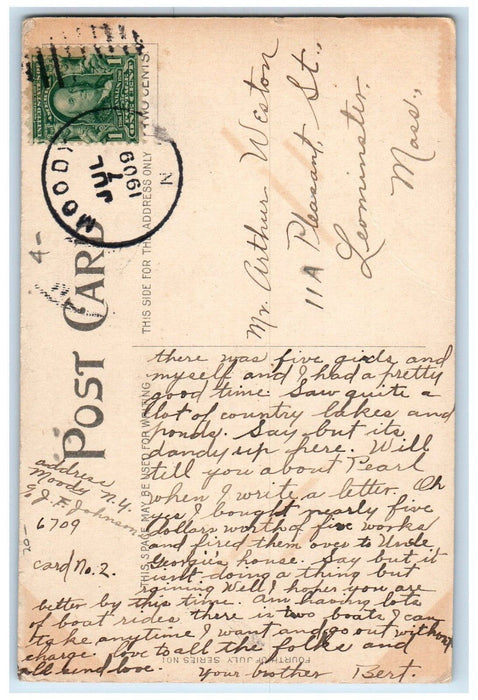 UNITED STATES OF AMERICA
1 ONE CENT 1
MOODY
JUL
7
1909
N
POST CARD
THIS SIDE FOR THE ADDRESS ONLY
TWO CENTS
THIS SPACE MAY BE USED FOR WRITING
FOURTH OF JULY SERIES NO 1
Mr. Arthur Weston
11A Pleasant St.,
Leominster,
Mass.,
4-
address
Moody N.Y.
% J. F. Johnson
6709
20-
card No. 2.
there was five girls and
myself and I had a pretty
good time. Saw quite a
lot of country lakes and
ponds. Say but its
dandy up here. Will
tell you about Pearl
when I write a letter. Oh
yes I bought nearly five
dollars worth of fire works
and fired them over to Uncle
Georgie's house. Say but it
isnt doing a thing but
raining Well I hope you are
better by this time. Am having lots
of boat rides there is two boats I can
take anytime I want and go out without
charge. love to all the folks and
all send love.
Your brother Bert.